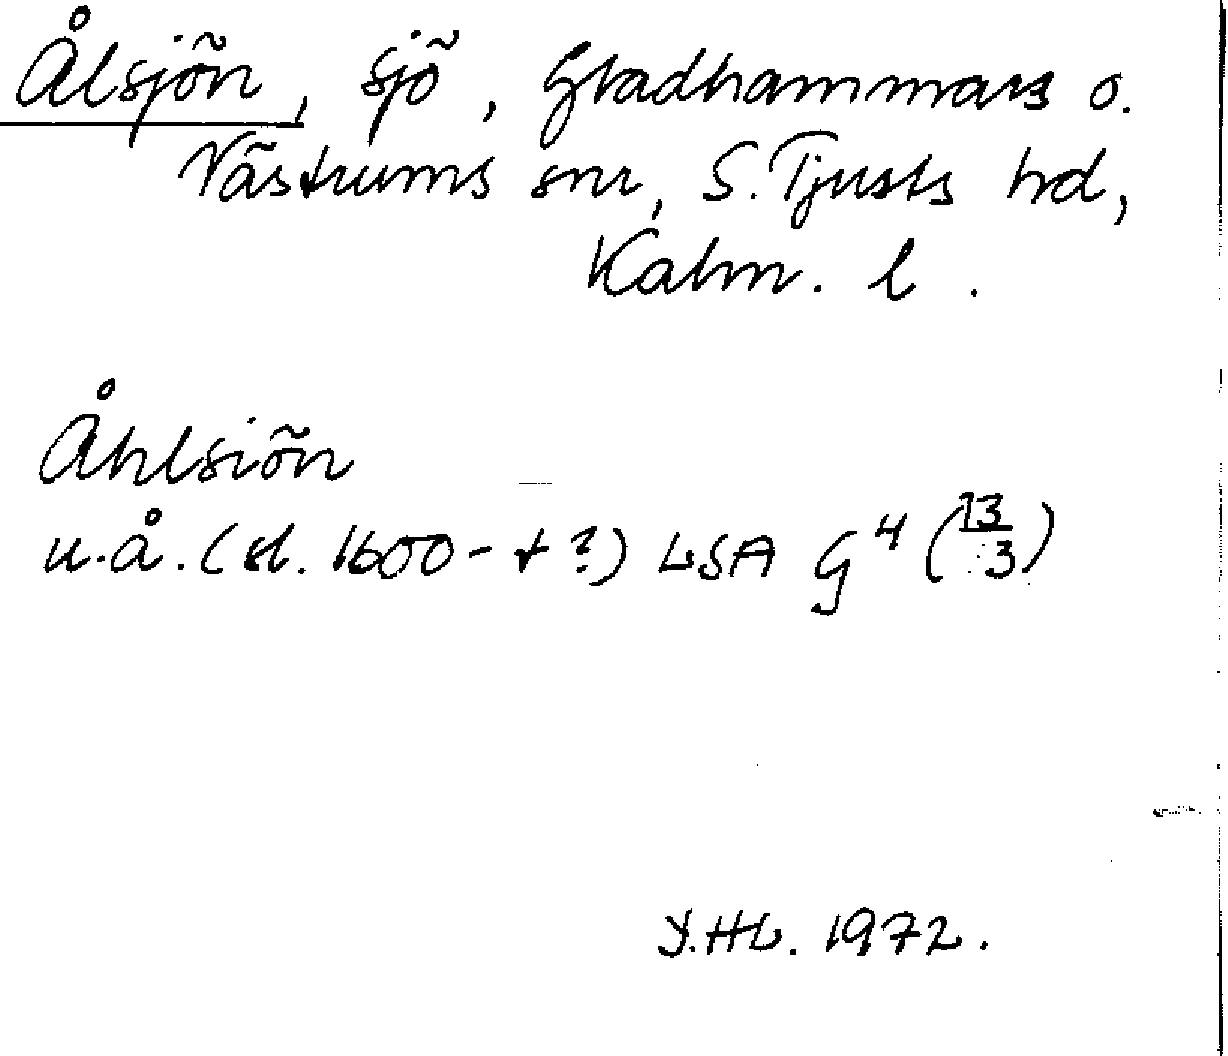 Ålsjön, sjö, Gladhammars o.
Västrums snr, S. Tjusts hd,
Kalm. l.
Åhlsiön
u.å. (sl. 1600-t?) LSA G4 (13/3)
Y.Hb. 1972.